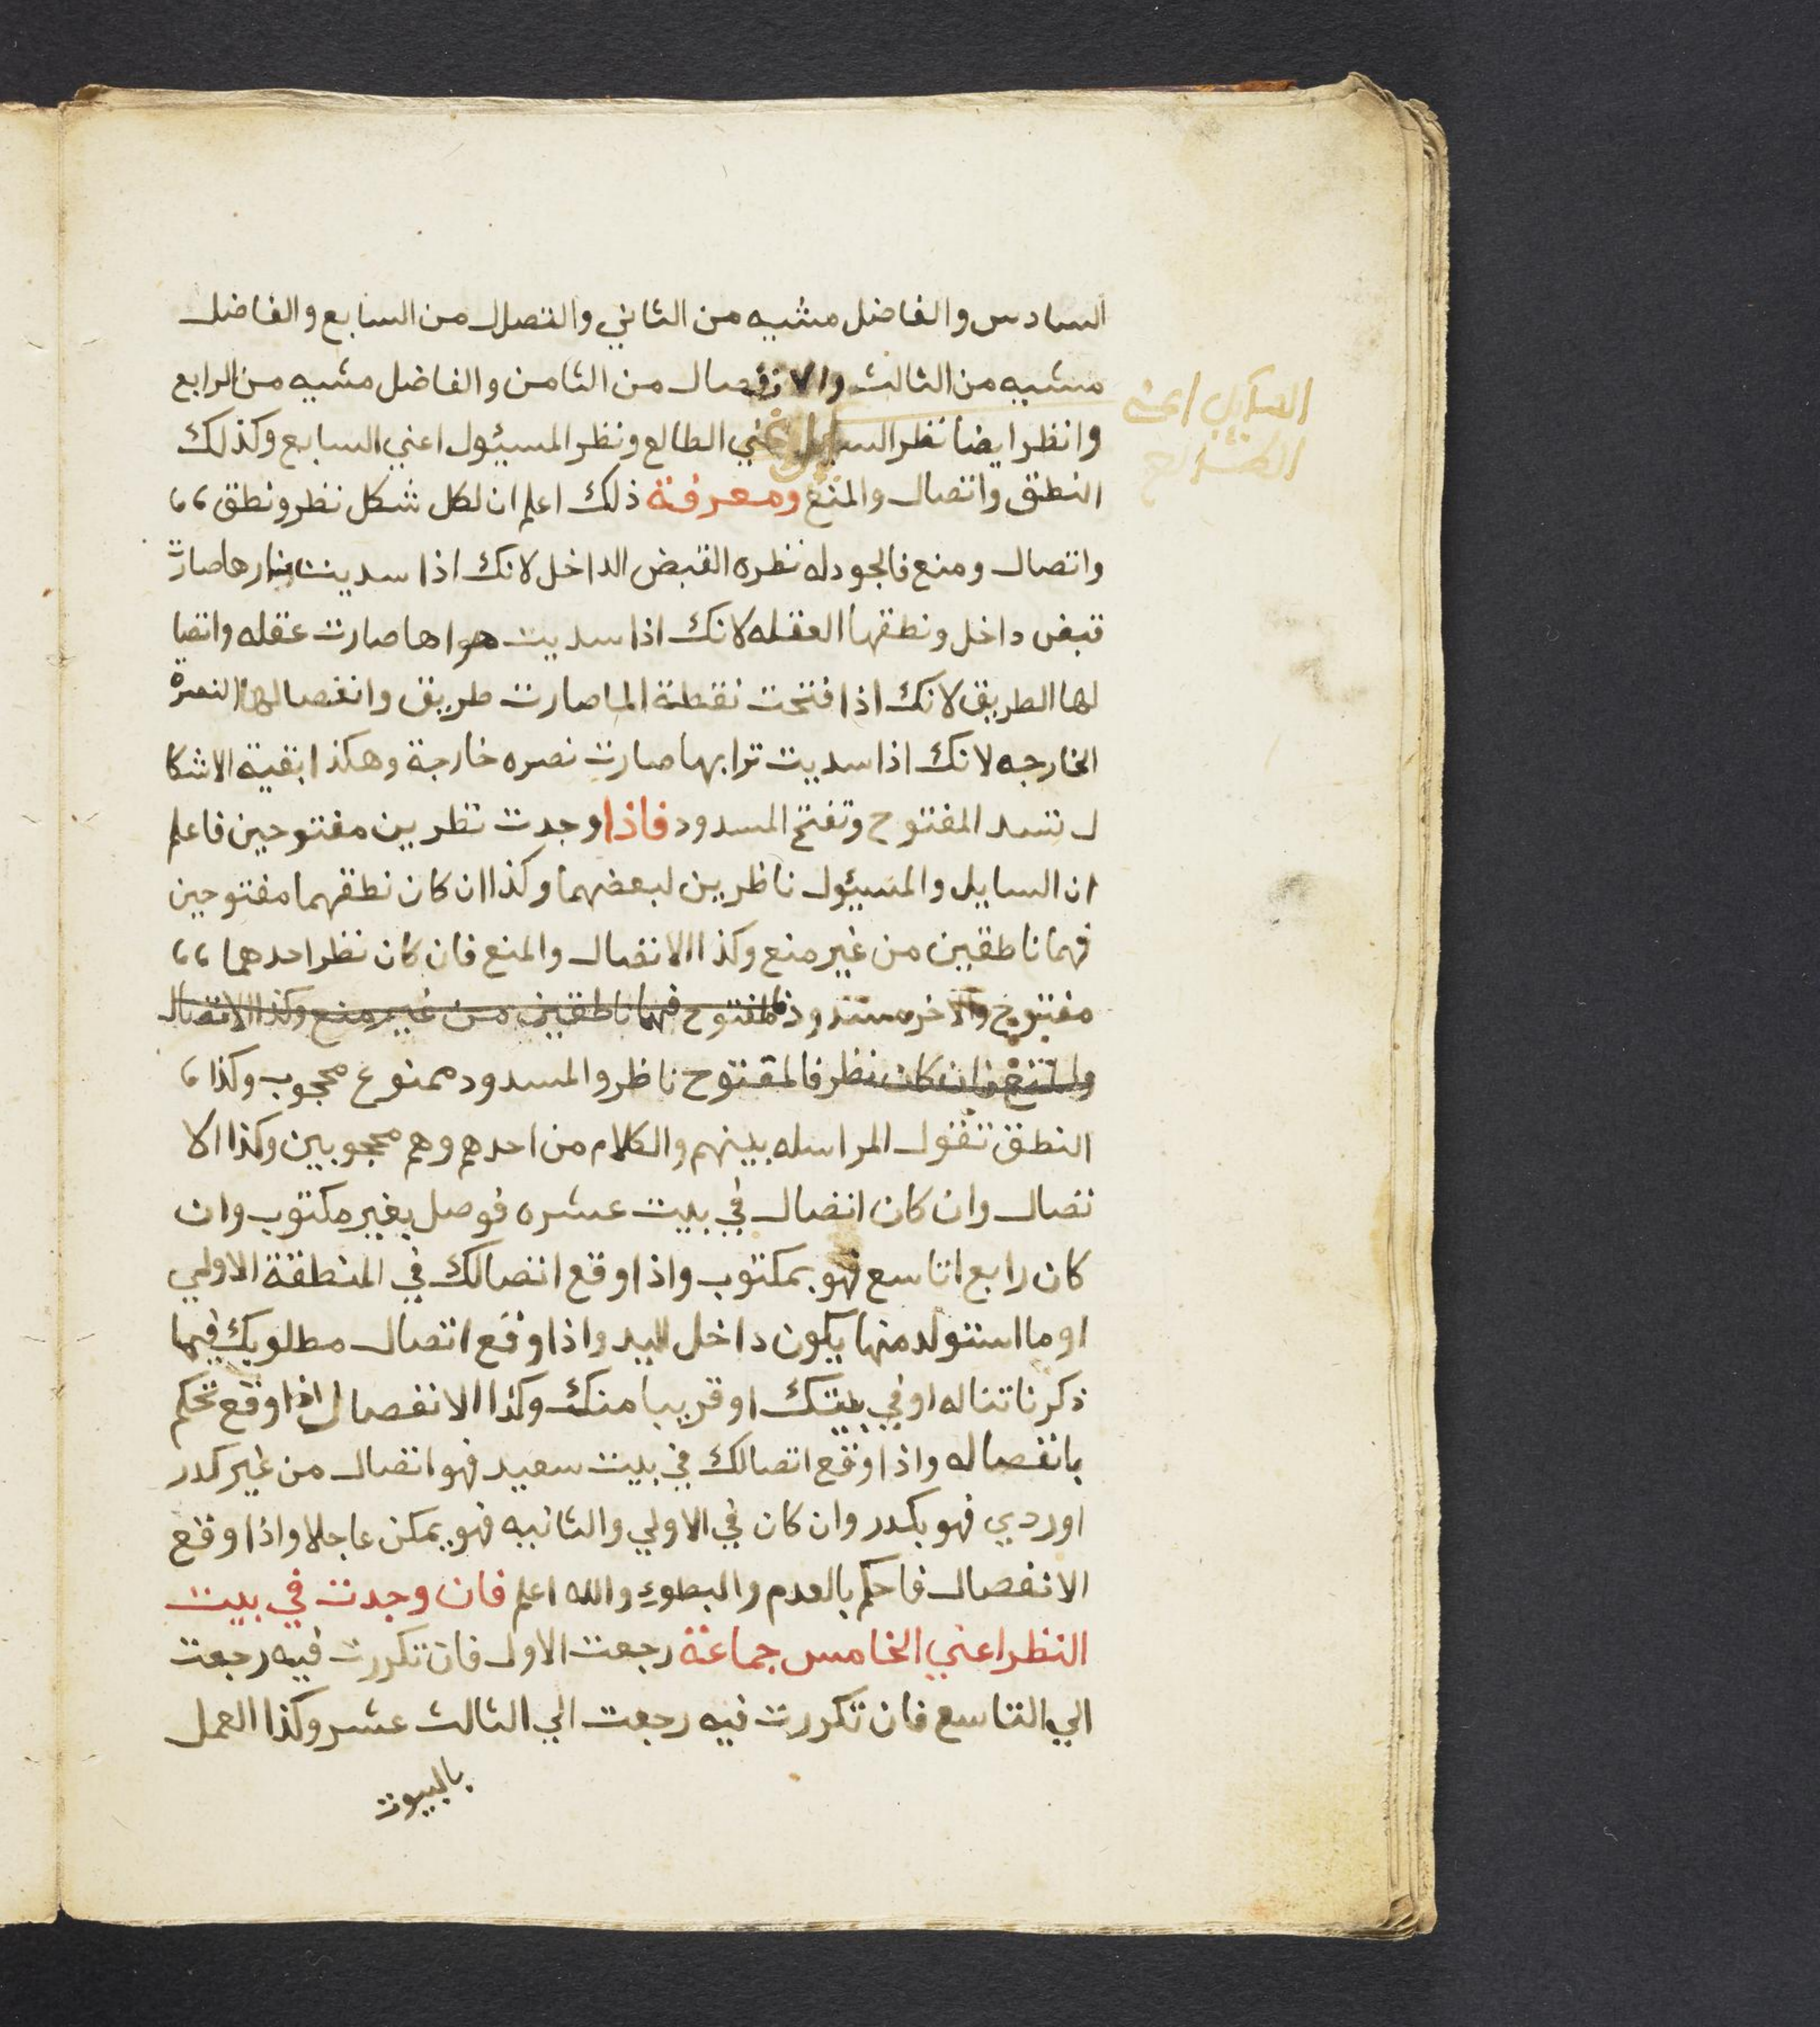 السادس والفاضل مشيه من الثاني والتصلل من السابع والفاضل
مشيه من الثالث والانفصال من الثامن والفاضل مشيه من الرابع
وانظر ايضا نظر السايل اعني الطالع ونظر المسيئول اعني السابع وكذلك
السايل اعني
الطالع
النطق واتصال والمنع ومعرفة ذلك اعلم ان لكل شكل نظر ونطق ،،
واتصال ومنع فالجودله نظره القبض الداخل لانك اذا سديت نارها صارت
قبض داخل ونطقها العقله لانك اذا سديت هواها صارت عقله واتصا
لها الطريق لانك اذا فتحت نقطة الما صارت طريق وانفصالها النصرة
الخارجه لانك اذا سديت ترابها صارت نصره خارجة وهكذا بقية الاشكا
ل تسد المفتوح وتفتح المسدود فاذا وجدت نظرين مفتوحين فاعلم
ان السايل والمسيئول ناظرين لبعضهما وكذا ان كان نطقهما مفتوحين
فهما ناطقين من غير منع وكذا الاتصال والمنع فان كان نظر احدهما ،،
مفتوح والاخر مسدود فالمفتوح فهما ناطقين من غير منع وكذا الاتصال
والمنع فان كان نظر فالمفتوح ناظر والمسدود ممنوع محجوب وكذا ،
النطق تقول المراسله بينهم والكلام من احدهم وهم محجوبين وكذا الا
تصال وان كان اتصال في بيت عشره فوصل بغير مكتوب وان
كان رابع اتاسع فهو بمكتوب واذا وقع اتصالك في المنطقة الاولي
او ما استولد منها يكون داخل البلد واذا وقع اتصال مطلوبك فيما
ذكرنا تناله او في بيتك او قريبا منك وكذا الانفصال اذا وقع تحكم
بانفصاله واذا وقع اتصالك في بيت سعيد فهو اتصال من غير كدر
اوردي فهو بكدر وان كان في الاولي والثانيه فهو يمكن عاجلا واذا وقع
الانفصال فاحكم بالعدم والبطوء والله اعلم فان وجدت في بيت
النظر اعني الخامس جماعة رجعت الاول فان تكررت فيه رجعت
الي التاسع فان تكررت فيه رجعت الي الثالث عشر وكذا العمل
بالبيوت